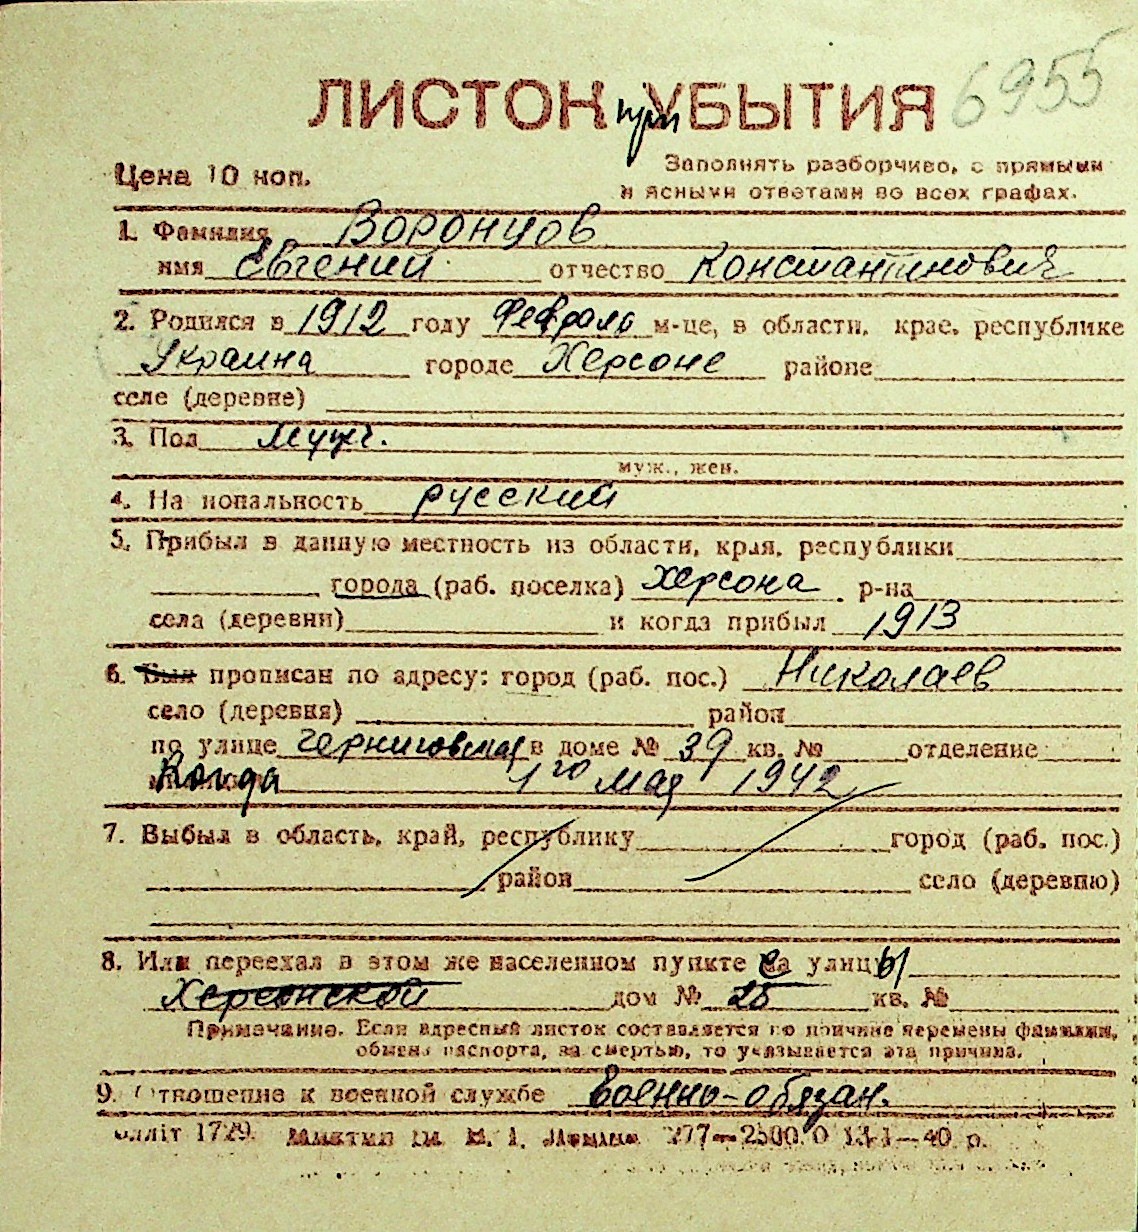 6955
ЛИСТОК при УБЫТИЯ
Цена 10 коп.
Заполнять разборчиво, с прямыми
и ясными ответами во всех графах.
1. Фамилия Воронцов
имя Евгений отчество Константинович
2. Родился в 1912 году Феврале м-це, в области, крае, республике
Украина городе Херсоне районе
селе (деревне)
3. Пол Мужч.
муж., жен.
4. Национальность русский
5. Прибыл в данную местность из области, края, республики
города (раб. поселка) Херсона р-на
села (деревни) и когда прибыл 1913
6. Был прописан по адресу: город (раб. пос.) Николаев
село (деревня) район
по улице Черниговская в доме № 39 кв. № отделение
Когда 1го мая 1942
7. Выбыл в область, край, республику город (раб. пос.)
район село (деревню)
8. Или переехал в этом же населенном пункте с улицы
Херсонской дом № 25 кв. №
Примечание. Если адресный листок составляется по причине перемены фамилии,
обмена паспорта, за смертью, то указывается эта причина.
9. Отношение к военной службе военно-обязан.
1729. 277—2500.0 13-I—40 р.